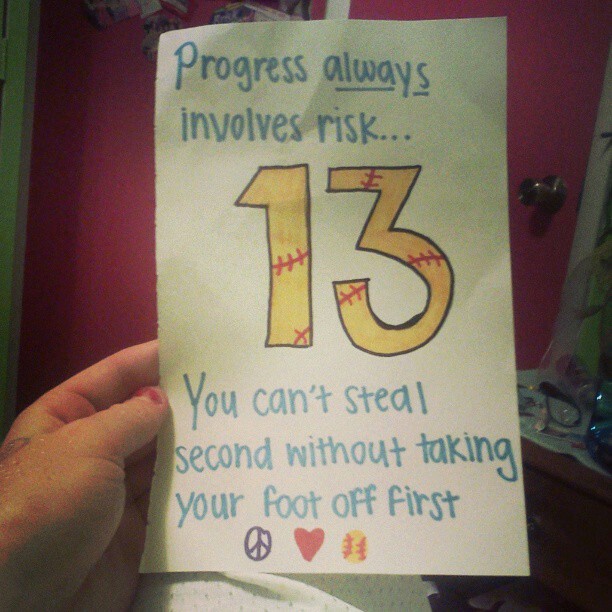 Progress always
involves risk...
13
You can't steal
second without taking
your foot off first